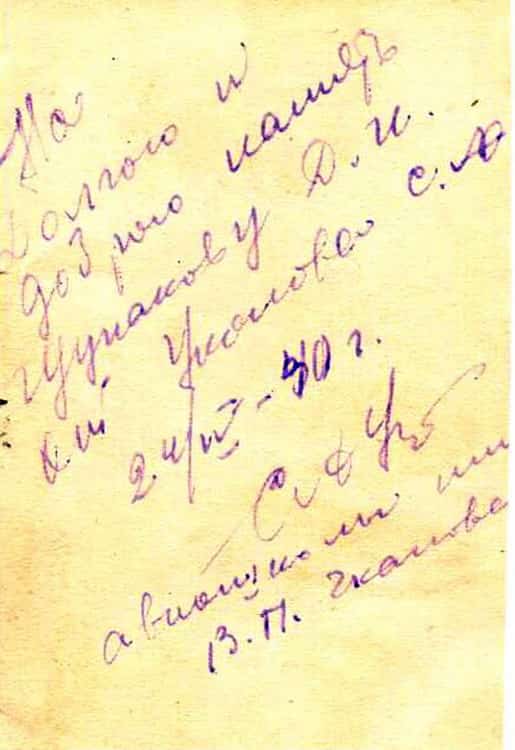 На
долгою и
добрую память
Щупакову Д. И.
от Уколова С. А
24/IV - 40 г.
авиашколы им
В. П. Чкалова